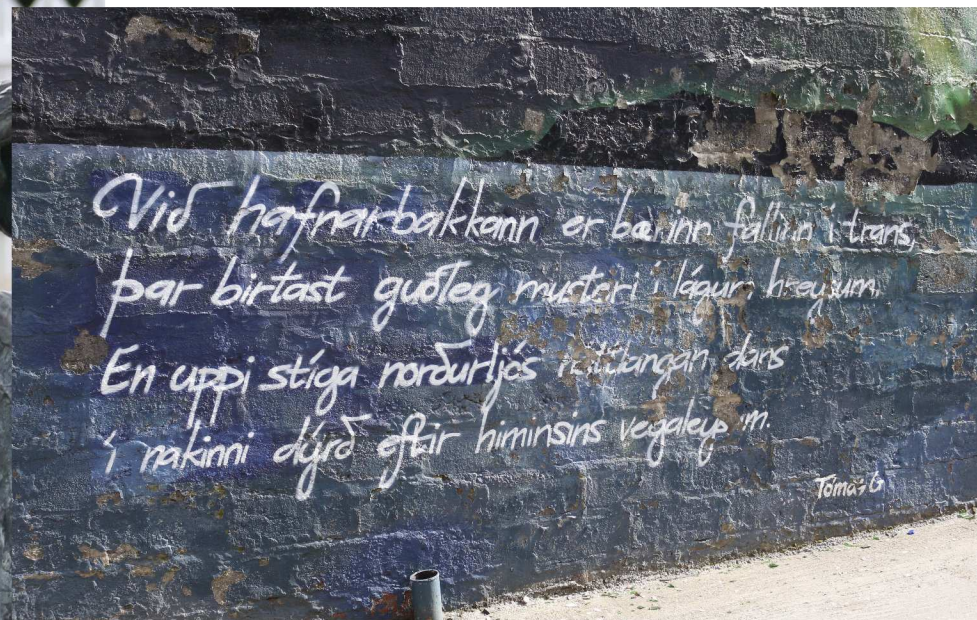 Við hafnarbakkann er bærinn fallinn í trans,
þar birtast guðleg musteri í lágum hreysum.
En uppi stíga norðurljós næturlangan dans
í nakinni dýrð eftir himinsins vegaleysum.
Tómas G